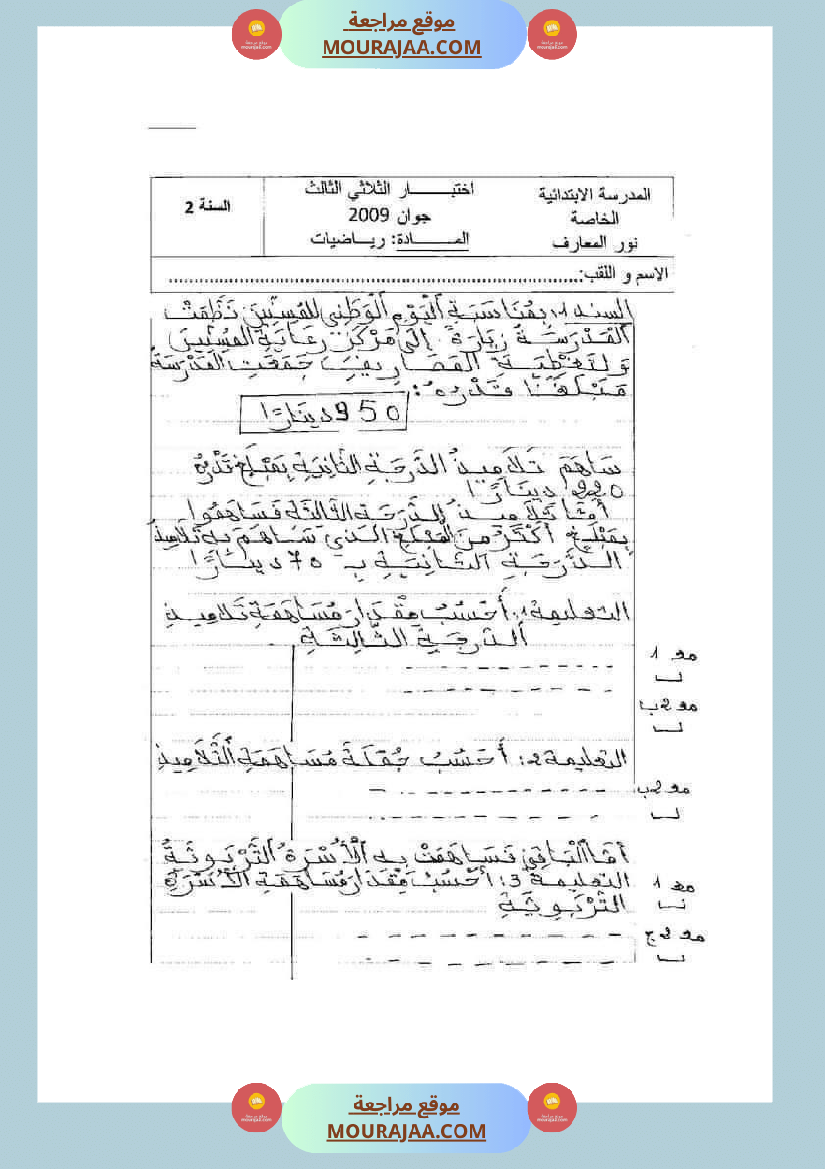 موقع مراجعة
MOURAJAA.COM
المدرسة الابتدائية
الخاصة
نور المعارف
اختبـــــار الثلاثي الثالث
جوان 2009
المــــادة: رياضيات
السنة 2
الاسم و اللقب:
السند 1: بمُنَاسَبَةِ الْيَوْمِ الْوَطَنِي لِلْمُسِنِّينَ نَظَّمَتْ
الْمَدْرَسَةُ زِيَارَةً إِلَى مَرْكَزِ رِعَايَةِ الْمُسِنِّينَ
وَلِتَغْطِيَةِ الْمَصَارِيفِ جَمَعَتِ الْمَدْرَسَةُ
مَبْلَغًا قَدْرُهُ:
950 دِينَارًا
سَاهَمَ تَلَامِيذُ الدَّرَجَةِ الثَّانِيَةِ بِمَبْلَغٍ قَدْرُهُ
220 دِينَارًا
أَمَّا تَلَامِيذُ الدَّرَجَةِ الثَّالِثَةِ فَسَاهَمُوا
بِمَبْلَغٍ أَكْثَرَ مِنَ الْمَبْلَغِ الَّذِي سَاهَمَ بِهِ تَلَامِيذُ
الدَّرَجَةِ الثَّانِيَةِ بِـ 70 دِينَارًا
التعليمة 1: أَحْسُبُ مِقْدَارَ مُسَاهَمَةِ تَلَامِيذِ
الدَّرَجَةِ الثَّالِثَةِ
مع 1
مع 2 ب
التعليمة 2: أَحْسُبُ جُمْلَةَ مُسَاهَمَةِ التَّلَامِيذِ
مع 2 ب
أَمَّا الْبَاقِي فَسَاهَمَتْ بِهِ الْأُسْرَةُ التَّرْبَوِيَّةُ
التعليمة 3: أَحْسُبُ مِقْدَارَ مُسَاهَمَةِ الْأُسْرَةِ
التَّرْبَوِيَّةِ
مع 1
مع 3 ج
موقع مراجعة
MOURAJAA.COM